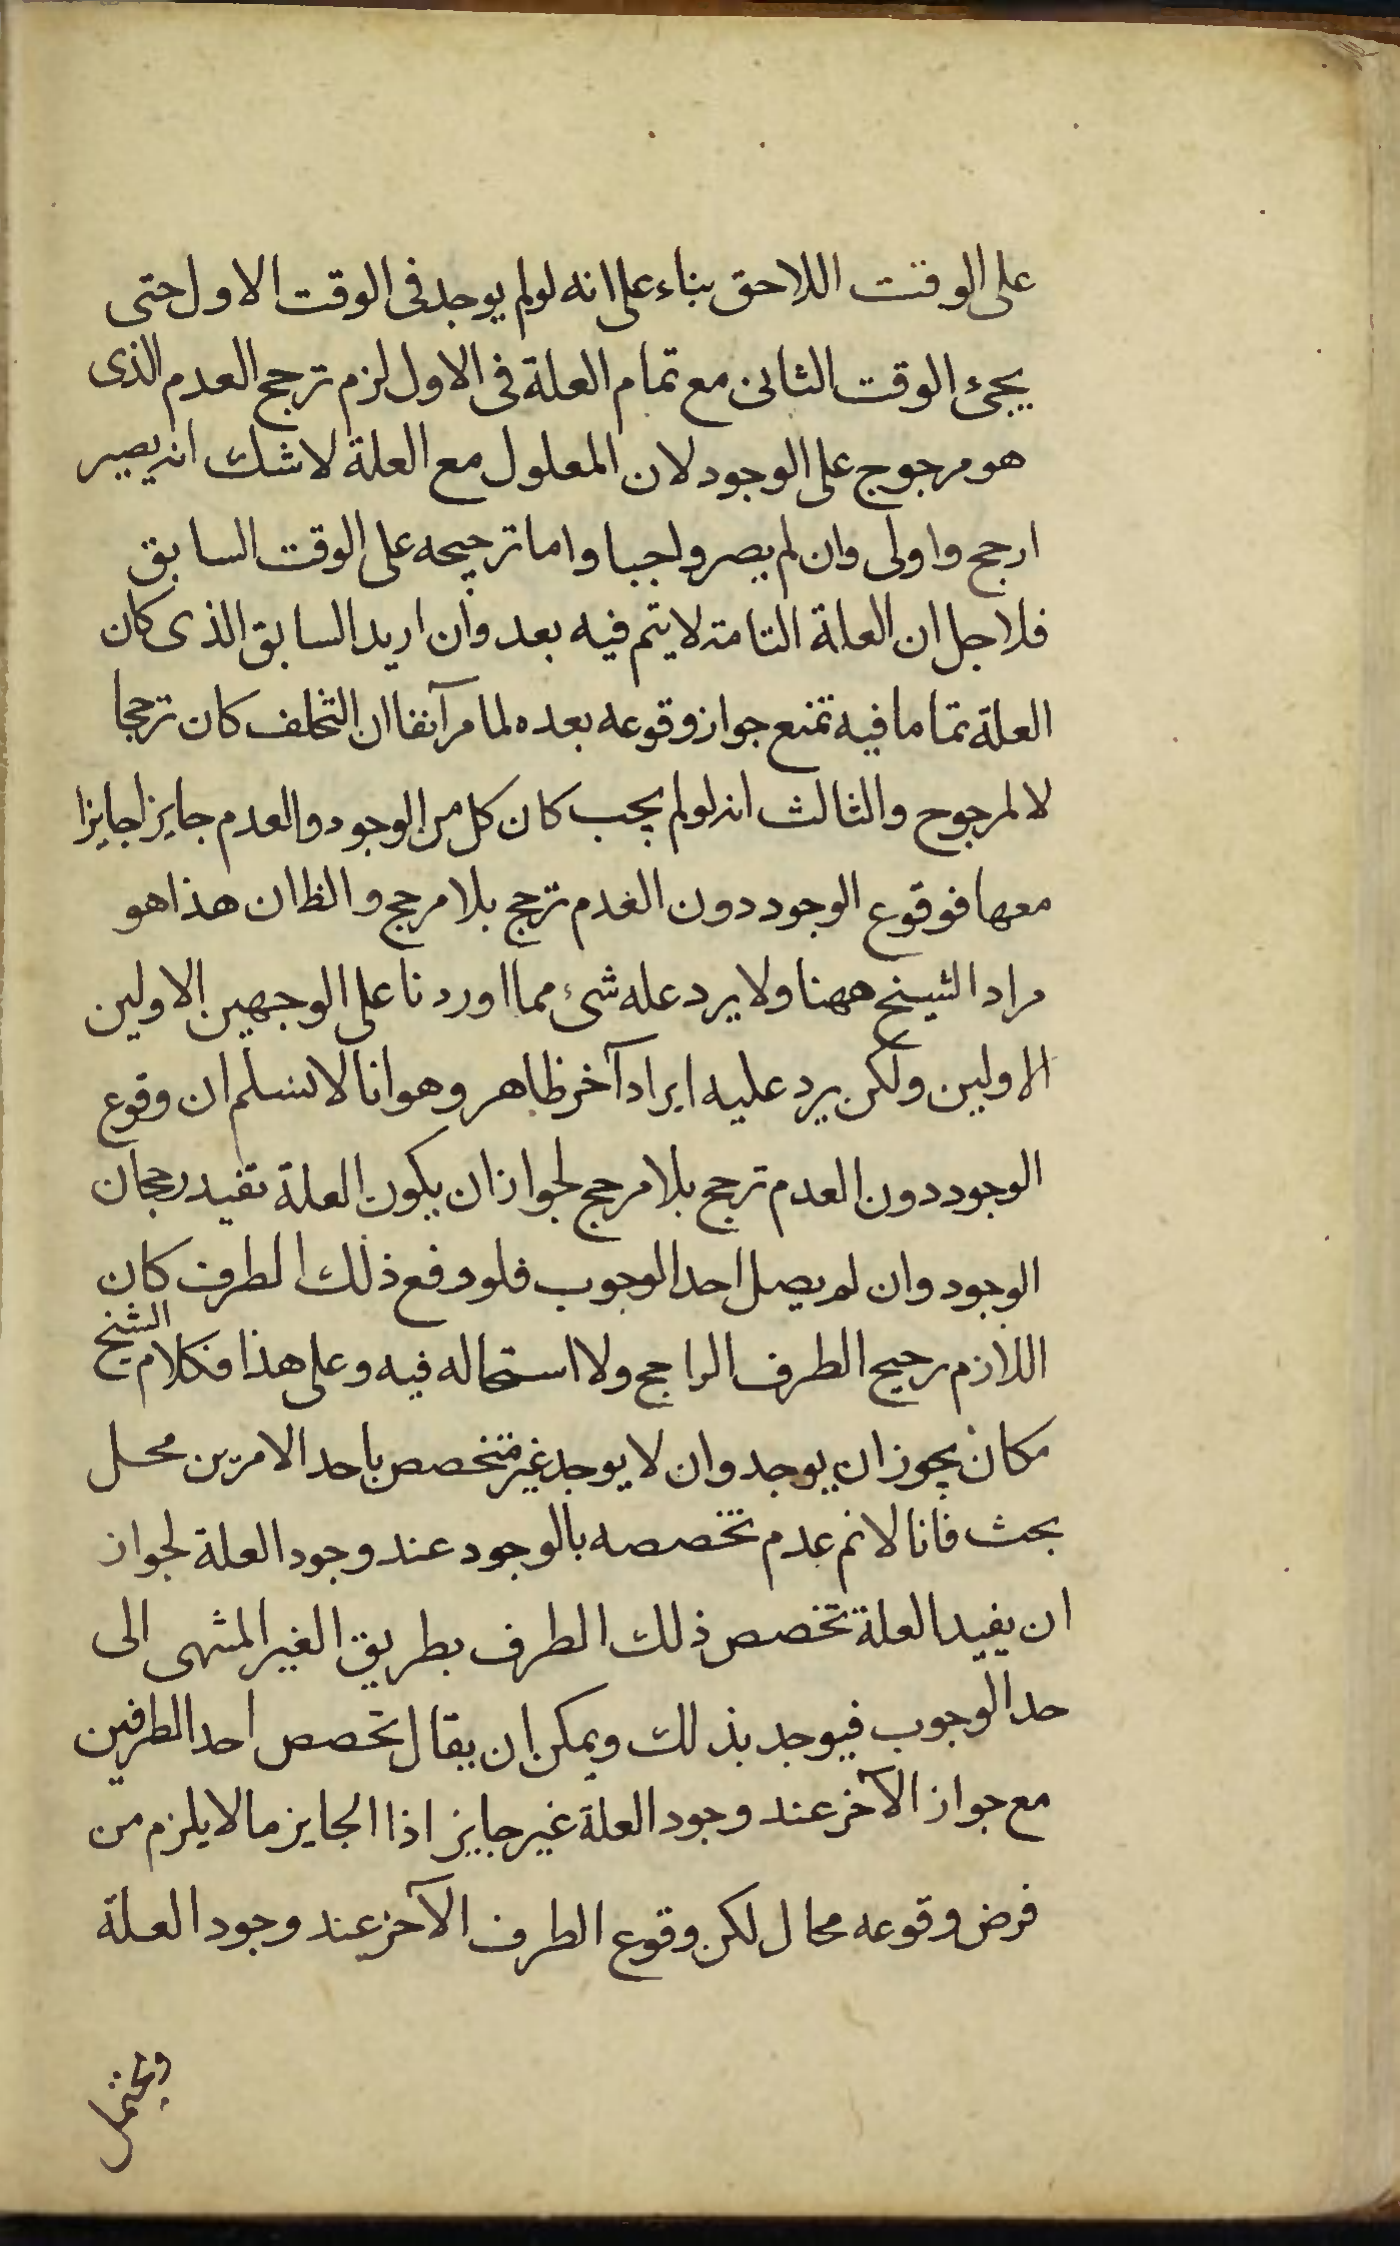 على الوقت اللاحق بناء على انه لو لم يوجد فى الوقت الاول حتى
يجئ الوقت الثانى مع تمام العلة فى الاول لزم ترجح العدم الذى
هو مرجوح على الوجود لان المعلول مع العلة لا شك انه يصير
ارجح واولى وان لم يصر واجبا واما ترجيحه على الوقت السابق
فلاجل ان العلة التامة لا يتم فيه بعد وان اريد السابق الذى كان
العلة تماما فيه تمنع جواز وقوعه بعده لما مر آنفا ان التخلف كان ترجحا
لا لمرجوح والثالث انه لو لم يجب كان كل من الوجود والعدم جايزا جايزا
معها فوقوع الوجود دون الغدم ترجح بلا مرجح والظ ان هذا هو
مراد الشيخ ههنا ولا يرد عله شىء مما اوردنا على الوجهين الاولين
الاولين ولكن يرد عليه ايراد آخر ظاهر وهو انا لا نسلم ان وقوع
الوجود دون العدم ترجح بلا مرجح لجواز ان يكون العلة تفيد رجحان
الوجود وان لم يصل احد الوجوب فلو وقع ذلك الطرف كان
اللازم رجيح الطرف الراجح ولا استحاله فيه وعلى هذا فكلام الشيخ
مكان يجوز ان يوجد وان لا يوجد غير متخصص باحد الامرين محل
بحث فانا لانم عدم تخصصه بالوجود عند وجود العلة لجواز
ان يفيد العلة تخصص ذلك الطرف بطريق الغير المنتهى الى
حد الوجوب فيوجد بذلك ويمكن ان يقال تخصص احد الطرفين
مع جواز الآخر عند وجود العلة غير جايز اذا الجايز ما لا يلزم من
فرض وقوعه محال لكن وقوع الطرف الآخر عند وجود العلة
ويحتمل